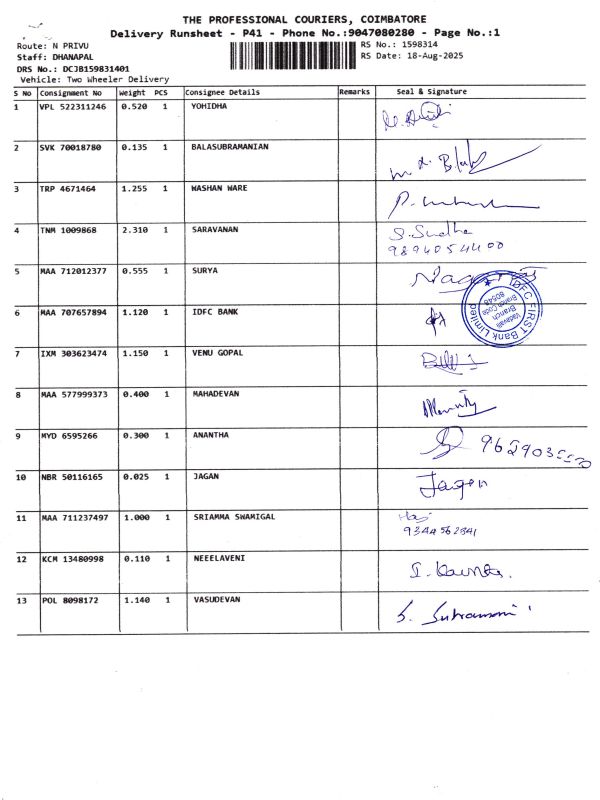 THE PROFESSIONAL COURIERS, COIMBATORE
Delivery Runsheet - P41 - Phone No.:9047080280 - Page No.:1
Route: N PRIVU RS No.: 1598314
Staff: DHANAPAL RS Date: 18-Aug-2025
DRS No.: DCJB159831401
Vehicle: Two Wheeler Delivery
S No Consignment No Weight PCS Consignee Details Remarks Seal & Signature
1 VPL 522311246 0.520 1 YOHIDHA
2 SVK 70018780 0.135 1 BALASUBRAMANIAN
3 TRP 4671464 1.255 1 WASHAN WARE
4 TNM 1009868 2.310 1 SARAVANAN S. Sudha
9894054400
5 MAA 712012377 0.555 1 SURYA
6 MAA 707657894 1.120 1 IDFC BANK
IDFC FIRST Bank Limited
Vadavalli
Branch
Branch Code
80548
7 IXM 303623474 1.150 1 VENU GOPAL
8 MAA 577999373 0.400 1 MAHADEVAN
9 MYD 6595266 0.300 1 ANANTHA
10 NBR 50116165 0.025 1 JAGAN Jagen
11 MAA 711237497 1.000 1 SRIAMMA SWAMIGAL
9344562841
12 KCM 13480998 0.110 1 NEEELAVENI
13 POL 8098172 1.140 1 VASUDEVAN